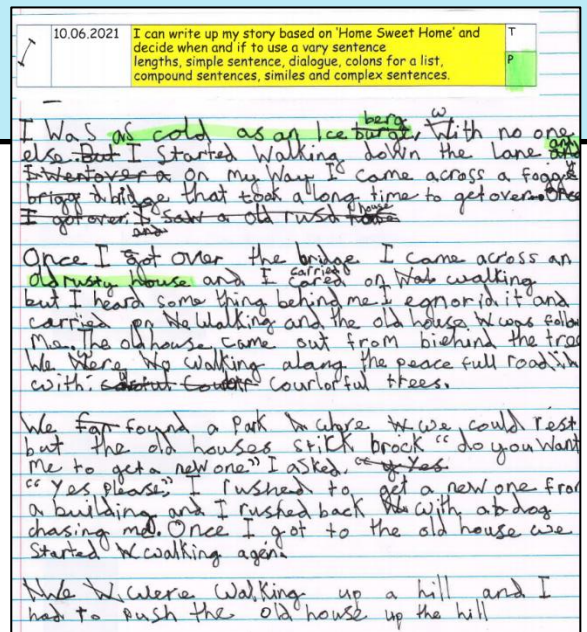 10.06.2021
I can write up my story based on ‘Home Sweet Home’ and
decide when and if to use a vary sentence
lengths, simple sentence, dialogue, colons for a list,
compound sentences, similes and complex sentences.
T
P
berg w
I was as cold as an Ice burag, With no one
else. But I Started Walking down the lane and
I Wentover a on my Way I came across a foggy
brigg dbridge that took a long time to get over. Once
I got over I saw a old rusd house
and
Once I got over the bridge I came across an
old rusty house and I carried cared on walking
but I heard some thing behind me. I egnorid it and
carried on walking and the old house was follow
me. The old house came out from biehind the tree
We Were walking alang the peace full road
with: courlorful trees.
We found a Park where we could rest
but the old houses stick brock “do you Want
me to get a new one” I asked. “yes
“Yes please”, I rushed to get a new one from
a building and I rushed back with a dog
chasing me. Once I got to the old house we
Started walking agen.
We were walking up a hill and I
had to push the old house up the hill